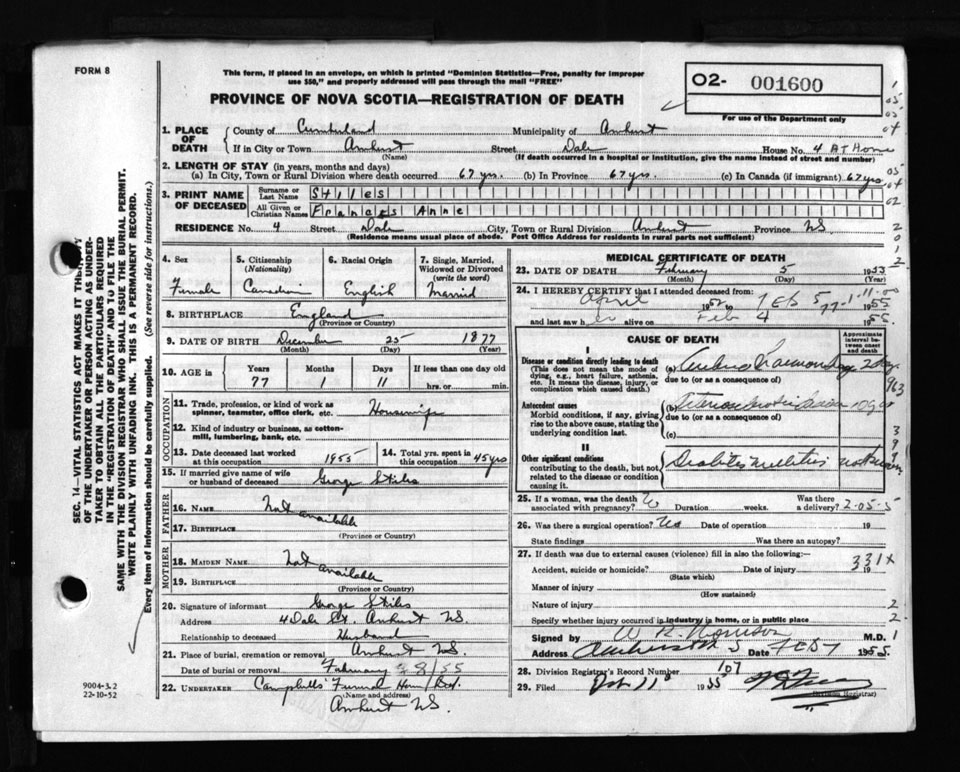 FORM 8
This form, if placed in an envelope, on which is printed "Dominion Statistics—Free, penalty for improper
use $50," and properly addressed will pass through the mail "FREE"
02- 001600
For use of the Department only
PROVINCE OF NOVA SCOTIA—REGISTRATION OF DEATH
1. PLACE OF DEATH
County of Cumberland Municipality of Amherst
If in City or Town Amherst Street Dale House No. 4 At Home
(Name) (If death occurred in a hospital or institution, give the name instead of street and number)
2. LENGTH OF STAY (in years, months and days)
(a) In City, Town or Rural Division where death occurred 67 yrs. (b) In Province 67 yrs. (c) In Canada (if immigrant) 67 yrs
3. PRINT NAME OF DECEASED
Surname or Last Name Stiles
All Given or Christian Names Frances Anne
RESIDENCE No. 4 Street Dale City, Town or Rural Division Amherst Province NS.
(Residence means usual place of abode. Post Office Address for residents in rural parts not sufficient)
4. Sex Female
5. Citizenship (Nationality) Canadian
6. Racial Origin English
7. Single, Married, Widowed or Divorced (write the word) Married
8. BIRTHPLACE England
(Province or Country)
9. DATE OF BIRTH December 25 1877
(Month) (Day) (Year)
10. AGE in Years 77 Months 1 Days 11 If less than one day old hrs. or min.
OCCUPATION
11. Trade, profession, or kind of work as spinner, teamster, office clerk, etc. Housewife
12. Kind of industry or business, as cotton-mill, lumbering, bank, etc.
13. Date deceased last worked at this occupation 1955
14. Total yrs. spent in this occupation 45 yrs
15. If married give name of wife or husband of deceased George Stiles
FATHER
16. NAME Not available
17. BIRTHPLACE
(Province or Country)
MOTHER
18. MAIDEN NAME Not available
19. BIRTHPLACE
(Province or Country)
20. Signature of informant George Stiles
Address 4 Dale St. Amherst NS.
Relationship to deceased Husband
21. Place of burial, cremation or removal Amherst NS.
Date of burial or removal February 8/55
22. UNDERTAKER Campbells' Funeral Home
(Name and address)
Amherst NS.
MEDICAL CERTIFICATE OF DEATH
23. DATE OF DEATH February 5 1955
24. I HEREBY CERTIFY that I attended deceased from:
April 1952 to FEB 5 1955
and last saw her alive on Feb 4 1955.
CAUSE OF DEATH
Approximate interval between onset and death
I
Disease or condition directly leading to death
(This does not mean the mode of dying, e.g., heart failure, asthenia, etc. It means the disease, injury, or complication which caused death.)
(a)
due to (or as a consequence of)
Antecedent causes
Morbid conditions, if any, giving rise to the above cause, stating the underlying condition last.
(b)
due to (or as a consequence of)
(c)
II
Other significant conditions
contributing to the death, but not related to the disease or condition causing it.
Diabetes mellitus not known
25. If a woman, was the death associated with pregnancy? Duration weeks. Was there a delivery?
26. Was there a surgical operation? Date of operation 19
State findings Was there an autopsy?
27. If death was due to external causes (violence) fill in also the following:—
Accident, suicide or homicide? Date of injury 19
331x
(State which)
Manner of injury
(How sustained)
Nature of injury
Specify whether injury occurred in industry, in home, or in public place
Signed by W. R. Morrison M.D.
Address Amherst N.S. Date FEB 7 1955.
28. Division Registrar's Record Number 107
29. Filed Feb 11 1955
(Division Registrar)
SEC. 14—VITAL STATISTICS ACT MAKES IT THE DUTY
OF THE UNDERTAKER OR PERSON ACTING AS UNDER-
TAKER TO OBTAIN ALL THE PARTICULARS REQUIRED
IN THE "REGISTRATION OF DEATH" AND TO FILE THE
SAME WITH THE DIVISION REGISTRAR WHO SHALL ISSUE THE BURIAL PERMIT.
WRITE PLAINLY WITH UNFADING INK. THIS IS A PERMANENT RECORD.
Every item of information should be carefully supplied. (See reverse side for instructions.)
9004-3.2
22-10-52